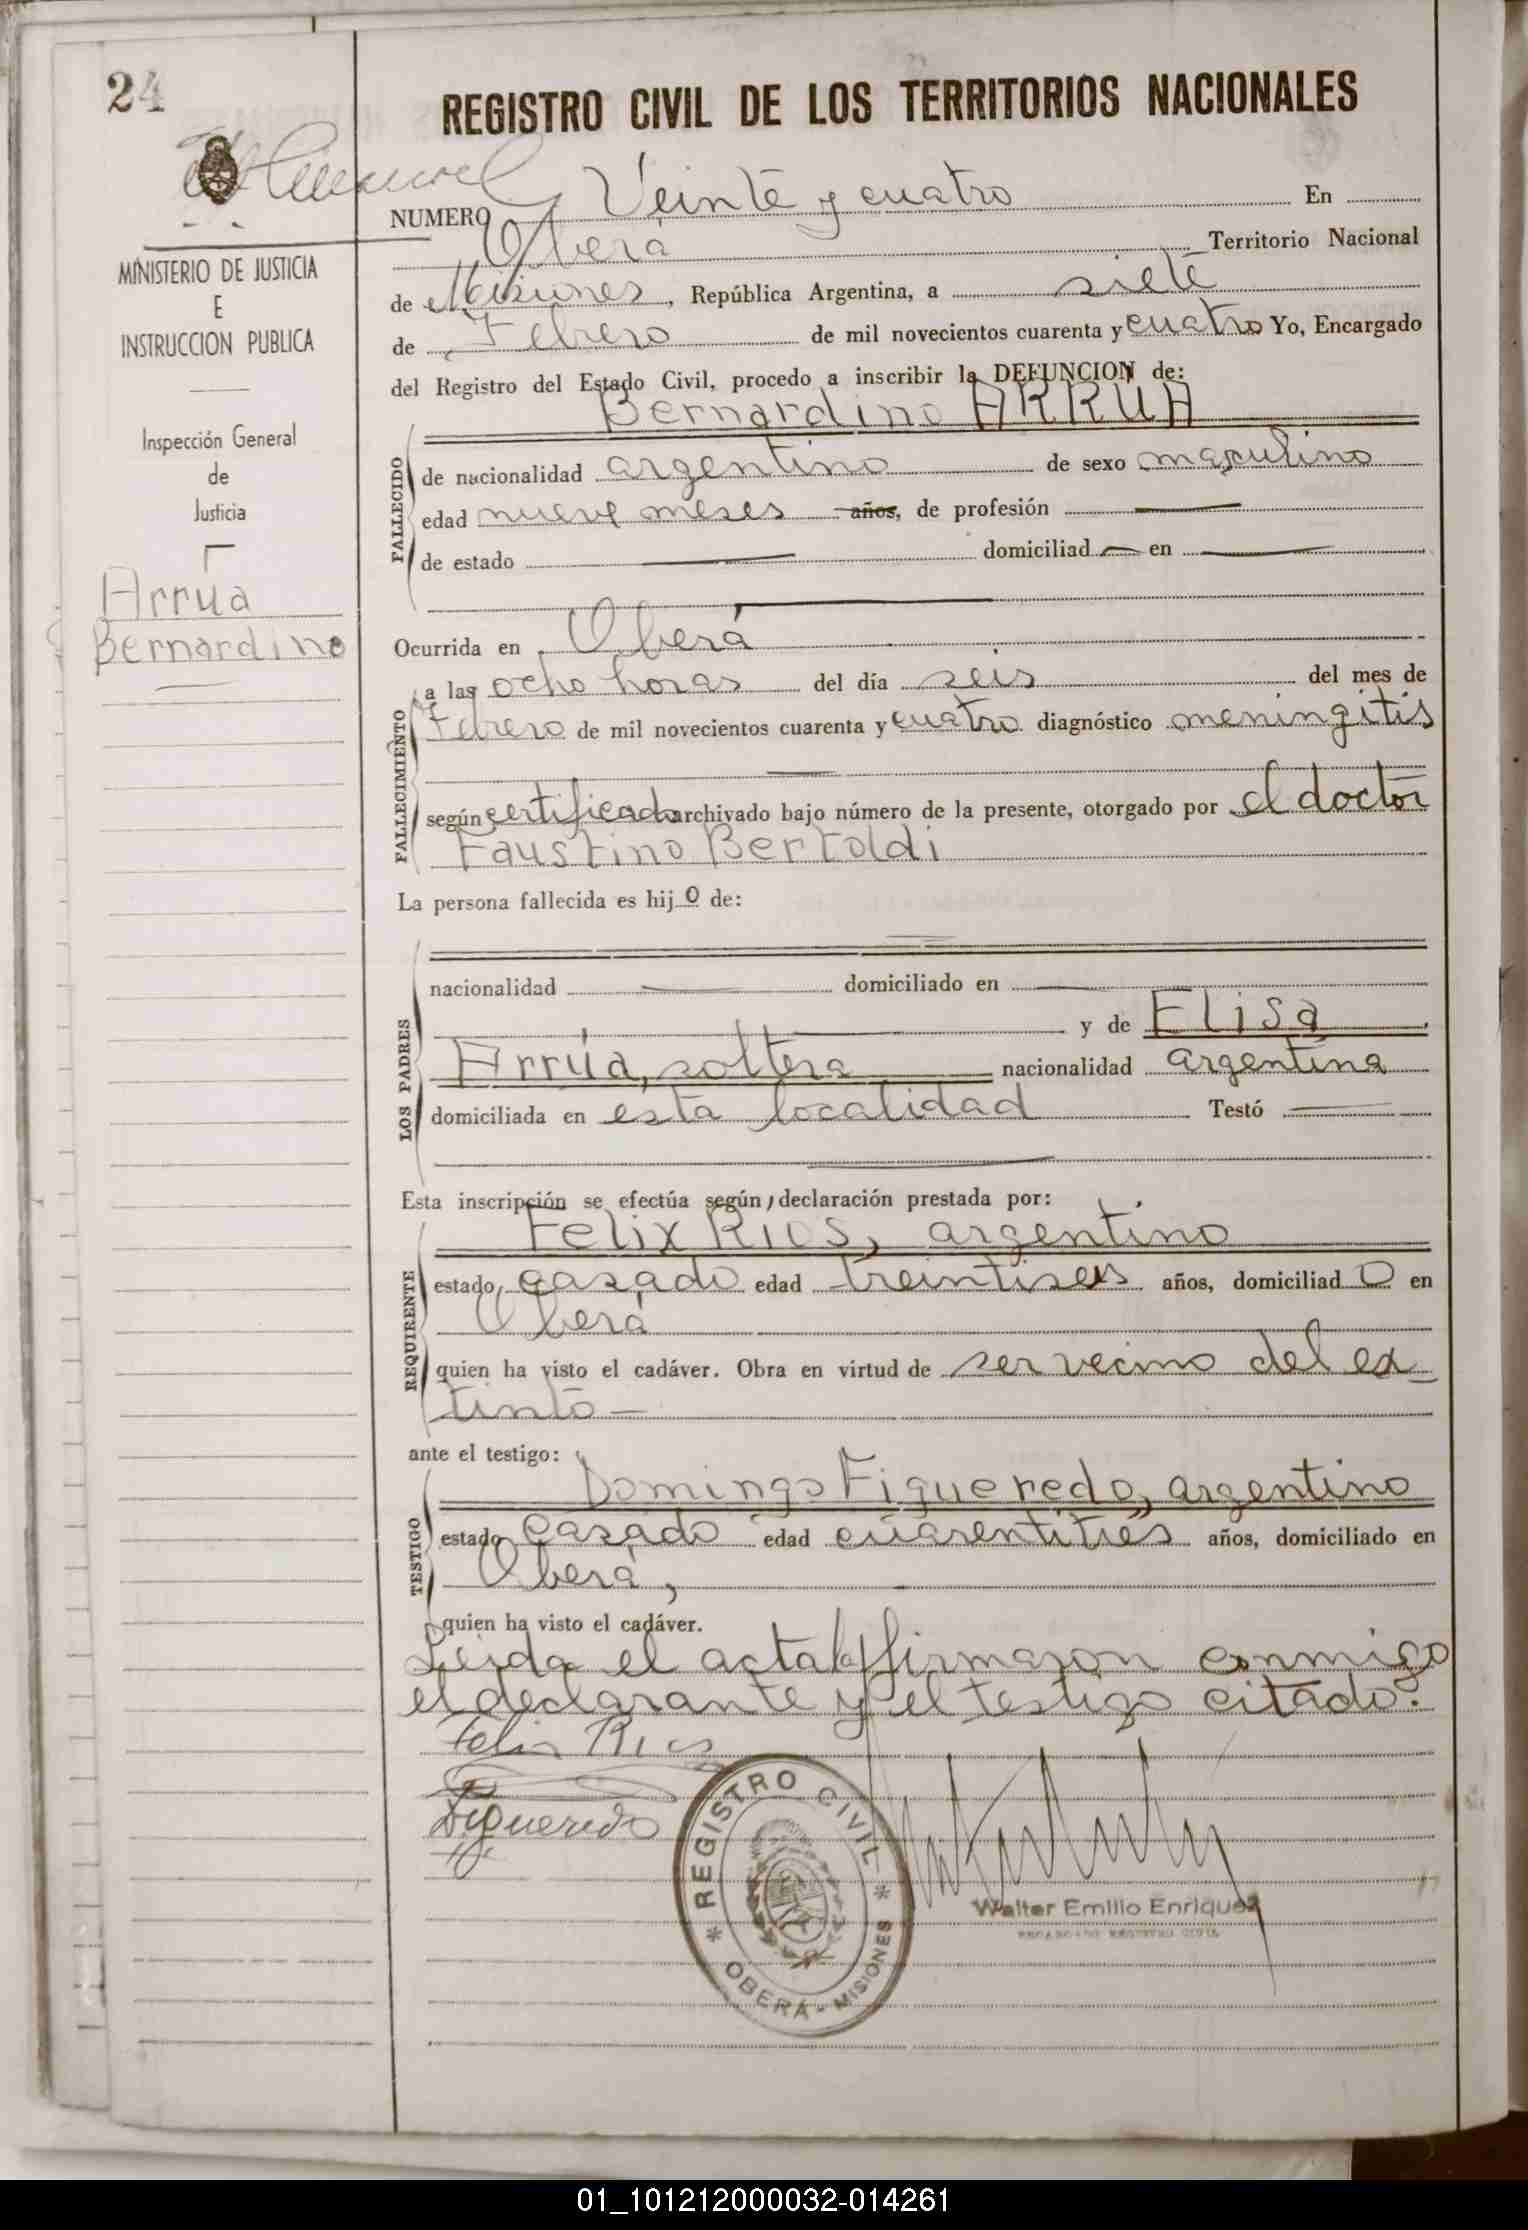 24
REGISTRO CIVIL DE LOS TERRITORIOS NACIONALES
NUMERO Veinte y cuatro En
Oberá Territorio Nacional
de Misiones, República Argentina, a siete
de Febrero de mil novecientos cuarenta y cuatro Yo, Encargado
del Registro del Estado Civil, procedo a inscribir la DEFUNCION de:
Bernardino ARRUA
MINISTERIO DE JUSTICIA
E
INSTRUCCION PUBLICA
Inspección General
de
Justicia
Arrúa
Bernardino
FALLECIDO
de nacionalidad argentino de sexo masculino
edad nueve meses años, de profesión
de estado domiciliad en
Ocurrida en Oberá
FALLECIMIENTO
a las ocho horas del día seis del mes de
Febrero de mil novecientos cuarenta y cuatro diagnóstico meningitis
según certificado archivado bajo número de la presente, otorgado por el doctor
Faustino Bertoldi
La persona fallecida es hijo de:
LOS PADRES
nacionalidad domiciliado en
y de Elisa
Arrúa, soltera nacionalidad argentina
domiciliada en esta localidad Testó
Esta inscripción se efectúa según declaración prestada por:
Felix Rios, argentino
REQUIRENTE
estado casado edad treintiseis años, domiciliado en
Oberá
quien ha visto el cadáver. Obra en virtud de ser vecino del ex-
tinto
ante el testigo:
Domingo Figueredo, argentino
TESTIGO
estado casado edad cuarentitres años, domiciliado en
Oberá,
quien ha visto el cadáver.
Leida el acta la firmaron conmigo
el declarante y el testigo citado.
Felix Rios
Figueredo
* REGISTRO CIVIL *
OBERÁ - MISIONES
Walter Emilio Enriquez
ENCARGADO REGISTRO CIVIL
01_101212000032-014261